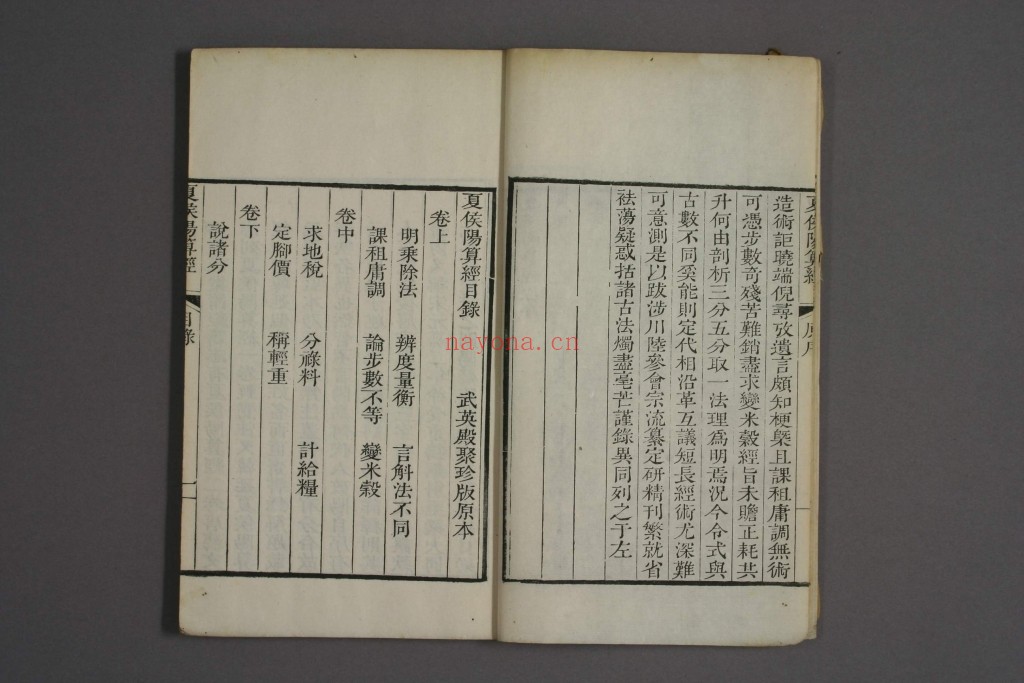 夏侯陽算經
原序
造術詎曉端倪尋攷遺言頗知梗槩且課租庸調無術
可憑步數奇殘苦難銷盡求變米穀經旨未贍正耗共
升何由剖析三分五分取一法理爲明焉況今令式與
古數不同奚能則定代相沿革互議短長經術尤深難
可意測是以跋涉川陸參會宗流纂定研精刊繁就省
祛蕩疑惑括諸古法燭盡毫芒謹錄異同列之于左
夏侯陽算經目錄 武英殿聚珍版原本
卷上
明乘除法 辨度量衡 言斛法不同
課租庸調 論步數不等 變米穀
卷中
求地稅 分祿料 計給糧
定腳價 稱輕重
卷下
說諸分
夏侯陽算經
目錄
一
nayona.cn